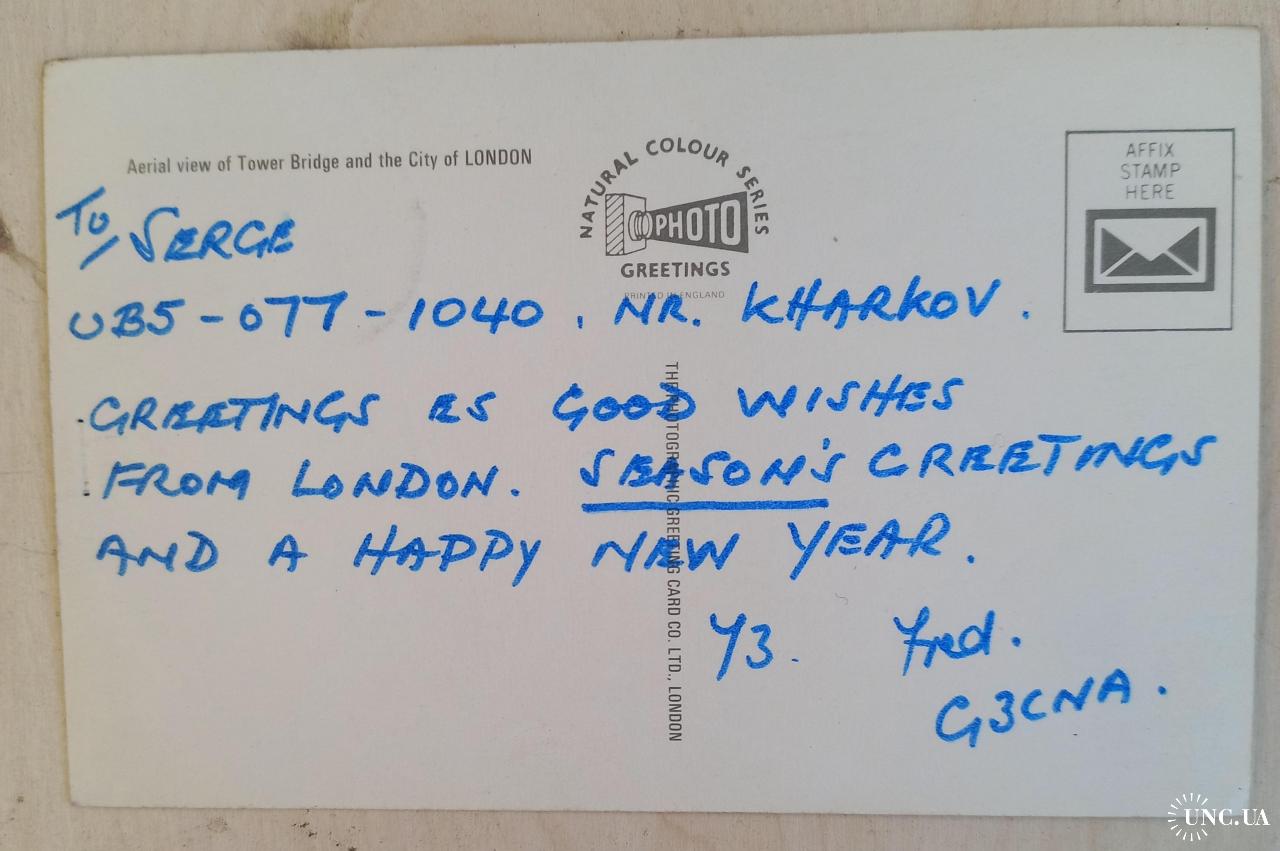 Aerial view of Tower Bridge and the City of LONDON
NATURAL COLOUR SERIES
PHOTO
GREETINGS
PRINTED IN ENGLAND
AFFIX
STAMP
HERE
To/ SERGE
UB5-077-1040, NR. KHARKOV.
GREETINGS ES GOOD WISHES
FROM LONDON. SEASON'S GREETINGS
AND A HAPPY NEW YEAR.
73. Fred.
G3CNA.
THE PHOTOGRAPHIC GREETING CARD CO. LTD., LONDON
UNC.UA